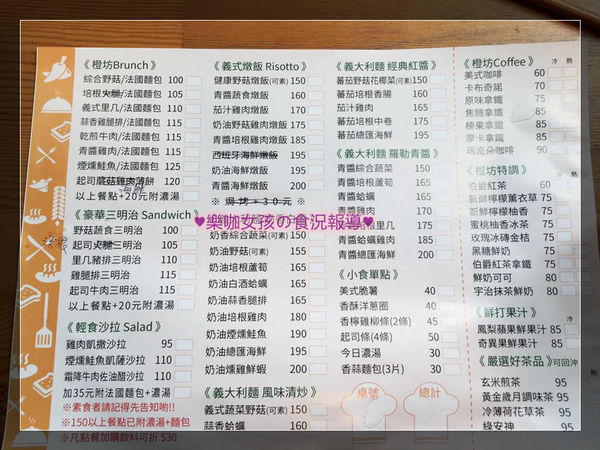 《橙坊Brunch》
綜合野菇/法國麵包 100
培根火腿/法國麵包 105
義式里几/法國麵包 110
蒜香雞腿排/法國麵包 115
乾煎牛肉/法國麵包 115
青醬雞肉/法國麵包 115
煙燻鮭魚/法國麵包 125
起司蘑菇雞肉薄餅 120
以上餐點+20元附濃湯
《豪華三明治 Sandwich》
野菇蔬食三明治 100
起司火腿三明治 105
里几豬排三明治 110
雞腿排三明治 115
起司牛肉三明治 115
以上餐點+20元附濃湯
《輕食沙拉 Salad》
雞肉凱撒沙拉 95
煙燻鮭魚凱薩沙拉 110
霜降牛肉佐油醋沙拉 110
加35元附法國麵包+濃湯
※素食者請記得先告知喲!!
※150以上餐點已附濃湯+麵包
※凡點餐加購飲料可折 $30
《義式燉飯 Risotto》
健康野菇燉飯(可素) 150
青醬蔬食燉飯 160
茄汁雞肉燉飯 170
奶油野菇雞肉燉飯 175
青醬培根雞肉燉飯 185
西班牙海鮮燉飯 195
奶油海鮮燉飯 195
青醬海鮮燉飯 200
※ 焗烤+30元 ※
♥樂咖女孩の食況報導♥
奶香綜合蔬菜(可素) 150
奶油野菇 (可素) 155
奶油培根蘆筍 165
奶油白酒蛤蠣 165
奶油蒜香腿排 165
奶油培根雞肉 180
奶油煙燻鮭魚 190
奶油總匯海鮮 195
奶油燻雞鮮蝦 200
《義大利麵 風味清炒》
義式蔬菜野菇(可素) 150
蒜香蛤蠣 160
《義大利麵 經典紅醬》
蕃茄野菇花椰菜(可素) 150
蕃茄培根香腸 160
茄汁雞肉 165
蕃茄培根中卷 165
蕃茄總匯海鮮 195
《義大利麵 羅勒青醬》
青醬綜合蔬菜 150
青醬培根蘆筍 165
青醬蛤蠣 165
170
175
青醬蛤蠣雞肉 185
青醬總匯海鮮 200
《小食單點》
美式脆薯 40
香酥洋蔥圈 40
香檸雞柳條(2條) 45
起司條(4條) 50
今日濃湯 30
香蒜麵包(3片) 30
桌號 總計
《橙坊Coffee》 冷 熱
美式咖啡 60
卡布奇諾 70
原味拿鐵 75
焦糖拿鐵 85
榛果拿鐵 85
摩卡拿鐵 85
瑞奇朵咖啡 90
《橙坊特調》
伯爵紅茶 60
新鮮檸檬薰衣草 75
新鮮檸檬柚香 75
蜜桃柚香冰茶 75
玫瑰冰磚金桔 75
黑糖鮮奶 75
伯爵紅茶拿鐵 75
鮮奶可可 80
宇治抹茶鮮奶 80
《鮮打果汁》
鳳梨蘋果鮮果汁 85
奇異果鮮果汁 85
《嚴選好茶品》可回沖
玄米煎茶 95
黃金歲月調味茶 95
冷薄荷花草茶 95
綠安神 95